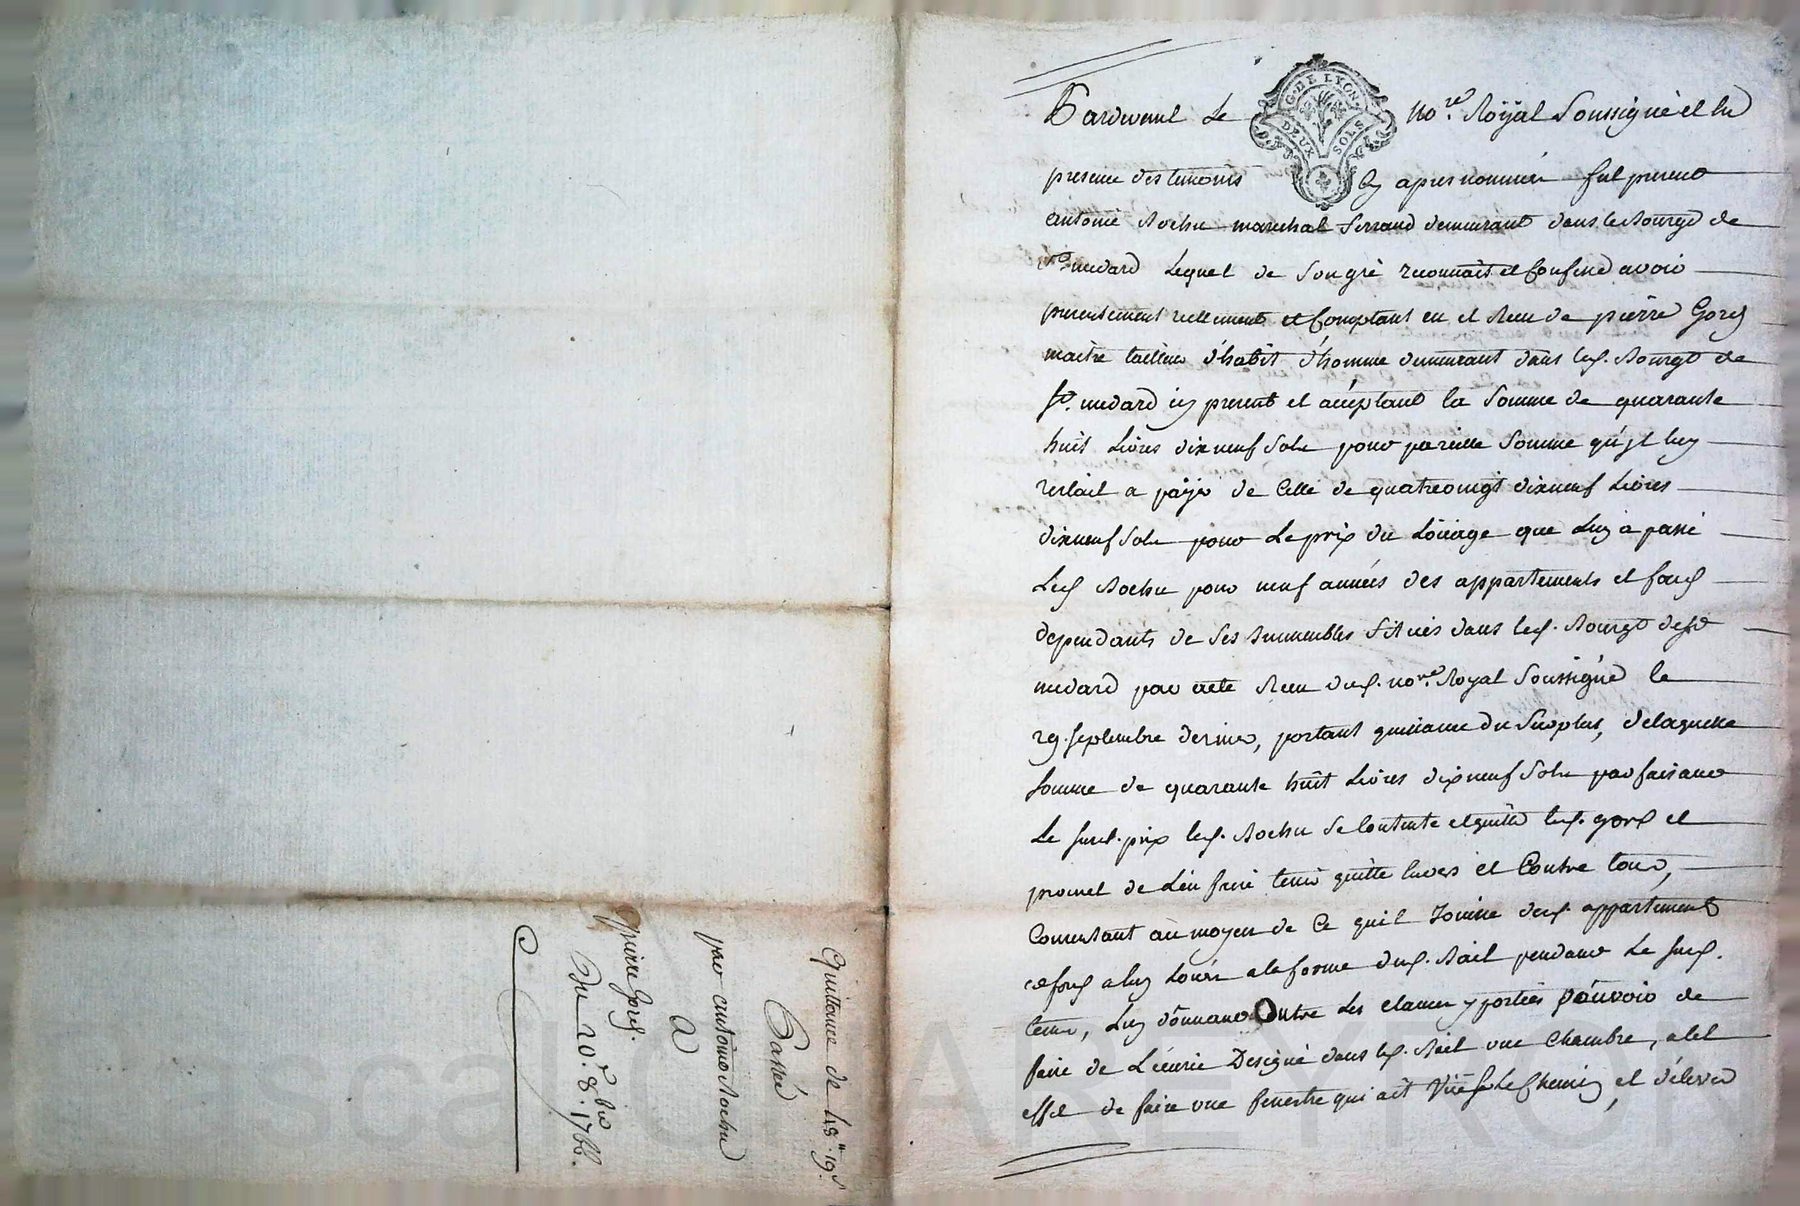 Quittance de 48ᴸᴸ 19ˢ
Passée
par antoine Rochu
A
pierre Gorcy.
Du 20ᵉ. 8.bre 1766.
G. DE LYON.
DEUX SOLS
Pardevant Le no.re Royal Soussigné et En
presence des temoins Cy apres nommés fut present
antoine Rochu marechal ferrand demeurant dans le Bourgt de
st. medard Lequel de son gré reconnait et Confesse avoir
presentement reellement et Comptant eu et Receu de pierre Gorcy
maitre tailleur d'habit d'homme demeurant dans led. Bourgt de
st. medard icy present et aceptant la somme de quarante
huit Livres dix neuf sols pour pareille somme qu'jl luy
restait a païer de Celle de quatrevingt dixneuf Livres
dixneuf sols pour Le prix du Loüage que Luy a passé
Led. Rochu pour neuf années des appartements et fond
dependants de ses Immeubles situés dans led. Bourgt de st.
medard par acte Receu dud. no.re Royal Soussigné le
29. septembre dernier, portant quittance du surplus, de laquelle
somme de quarante huit Livres dix neuf sols parfaisant
Le sud. prix led. Rochu se Contente et quitte led. gorcy et
promet de L'en faire tenir quitte Envers et Contre tous,
Consentant au moyen de Ce quil Jouisse desd. appartements
et fond a luy Loués a la forme dud. Bail pendant Le sud.
terme, Luy donnant Outre les clauses y portées pouvoir de
faire de L'écurie Designé dans led. Bail une chambre, a cet
effet de faire une fenestre qui ait Vüe sur Le Chemin, et d'élever